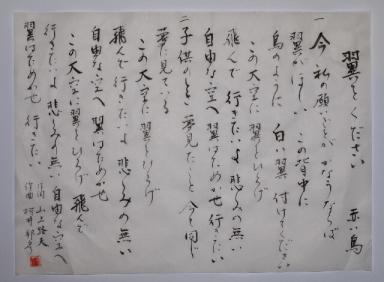 翼をください　赤い鳥
一 今 私の願いごとが かなうならば
翼がほしい この背中に
鳥のように 白い翼 付けてください
この大空に 翼をひろげ
飛んで行きたいよ 悲しみの無い
自由な空へ 翼はためかせ 行きたい
二 子供のとき 夢見たこと 今も同じ
夢に見ている
この大空に 翼をひろげ
飛んで行きたいよ 悲しみの無い
自由な空へ 翼はためかせ
この大空に 翼をひろげ 飛んで
行きたいよ 悲しみの無い 自由な空へ
翼はためかせ 行きたい
作詞 山上路夫
作曲 村井邦彦